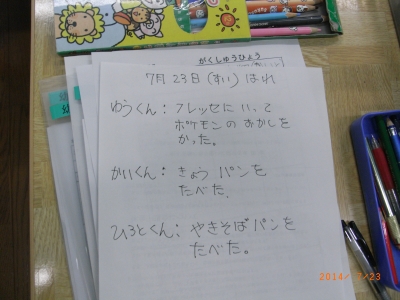 がくしゅうひょう
7月23日(すい)はれ
ゆうくん:フレッセにいって
ポケモンのおかしを
かった。
かいくん:きょうパンを
たべた。
ひろとくん:やきそばパンを
たべた。
2014/7/23